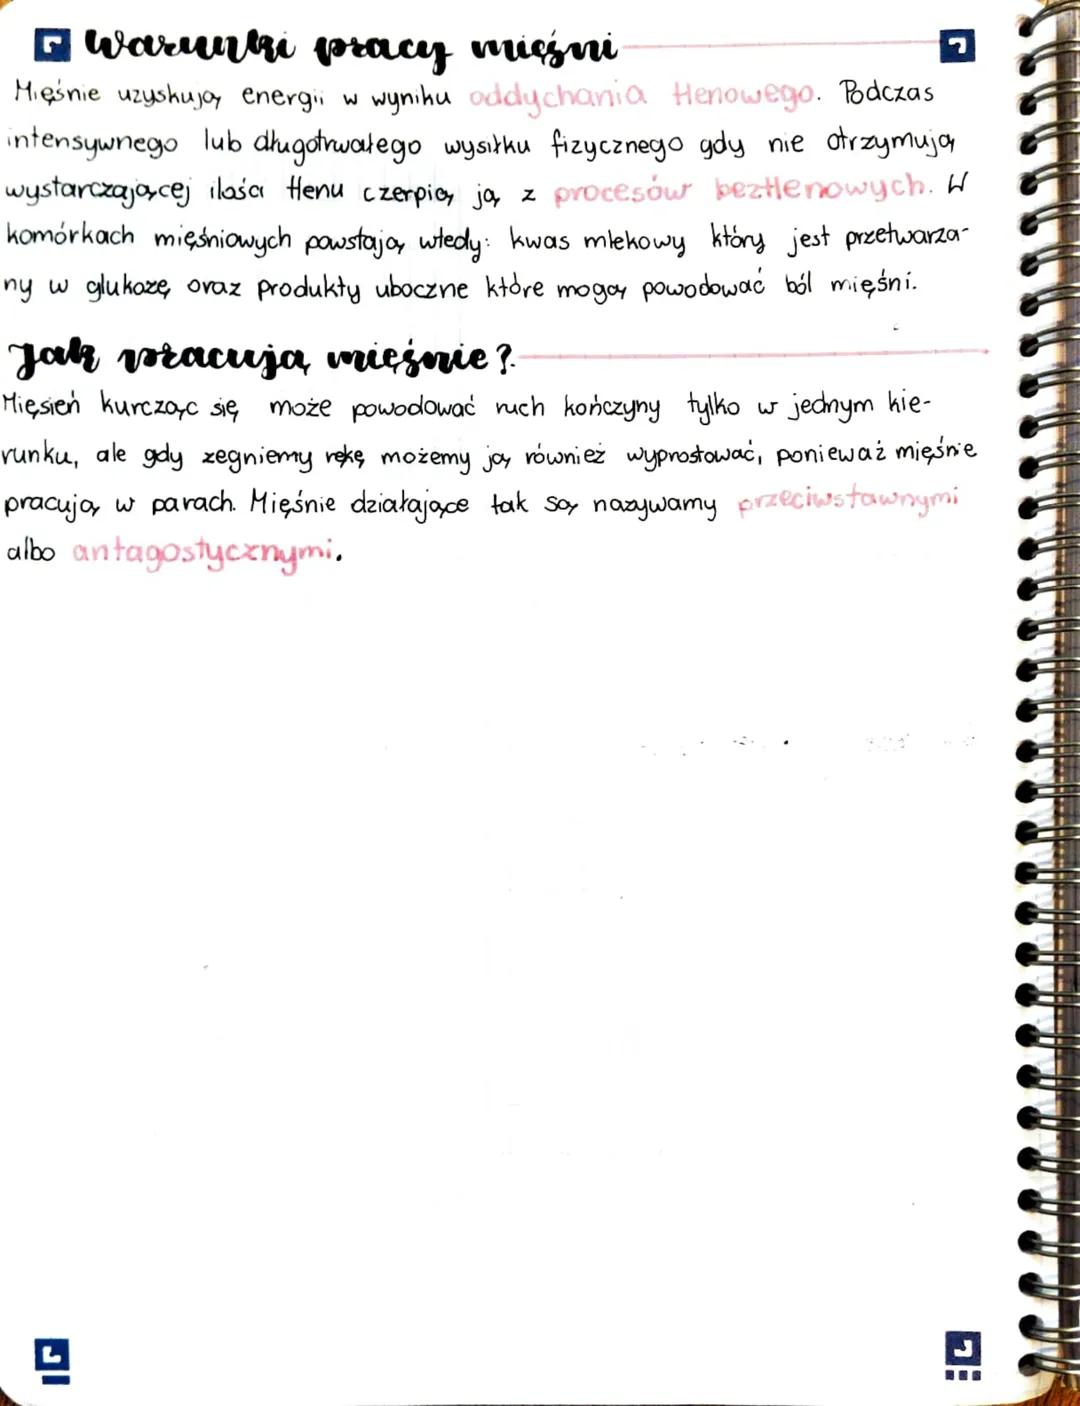 Warunki pracy mięśni
Mięśnie uzyskują energii w wyniku oddychania tlenowego. Podczas
intensywnego lub długotrwałego wysiłku fizycznego gdy nie otrzymują
wystarczającej ilości tlenu czerpią ją z procesów beztlenowych. W
komórkach mięśniowych powstają wtedy: kwas mlekowy który jest przetwarza-
ny w glukozę oraz produkty uboczne które mogą powodować ból mięśni.
Jak pracują mięśnie?
Mięsień kurcząc się może powodować ruch kończyny tylko w jednym kie-
runku, ale gdy zegniemy rękę możemy ją również wyprostować, ponieważ mięśnie
pracują w parach. Mięśnie działające tak są nazywamy przeciwstawnymi
albo antagostycznymi.